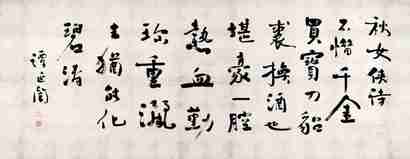 秋女俠詩
不惜千金
買寶刀貂
裘換酒也
堪豪一腔
熱血勤
珍重灑
去猶能化
碧濤
譚延闓